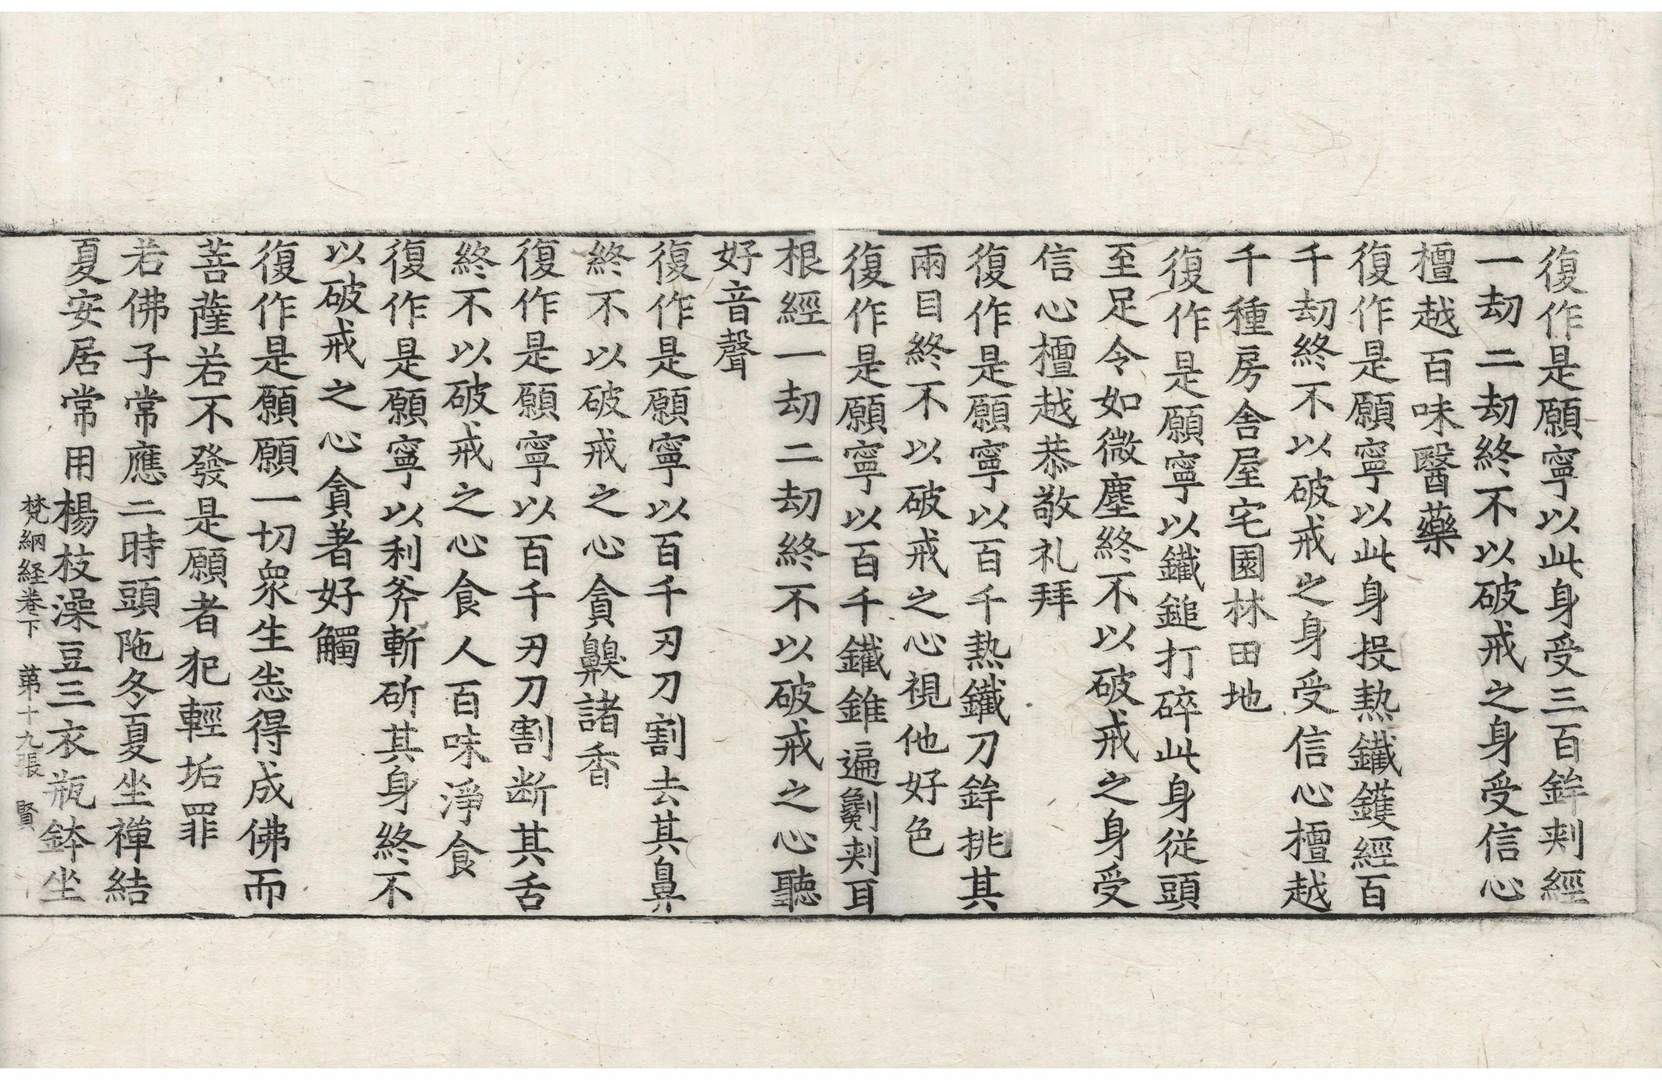 復作是願寧以此身受三百鉾刾經
一劫二劫終不以破戒之身受信心
檀越百味醫藥
復作是願寧以此身投熱鐵鑊經百
千劫終不以破戒之身受信心檀越
千種房舍屋宅園林田地
復作是願寧以鐵鎚打碎此身從頭
至足令如微塵終不以破戒之身受
信心檀越恭敬礼拜
復作是願寧以百千熱鐵刀鉾挑其
兩目終不以破戒之心視他好色
復作是願寧以百千鐵錐遍劖刾耳
根經一劫二劫終不以破戒之心聽
好音聲
復作是願寧以百千刃刀割去其鼻
終不以破戒之心貪齅諸香
復作是願寧以百千刃刀割断其舌
終不以破戒之心食人百味淨食
復作是願寧以利斧斬斫其身終不
以破戒之心貪著好觸
復作是願願一切衆生悉得成佛而
菩薩若不發是願者犯輕垢罪
若佛子常應二時頭陁冬夏坐禪結
夏安居常用楊枝澡豆三衣瓶鉢坐
梵網経巻下 第十九張 賢